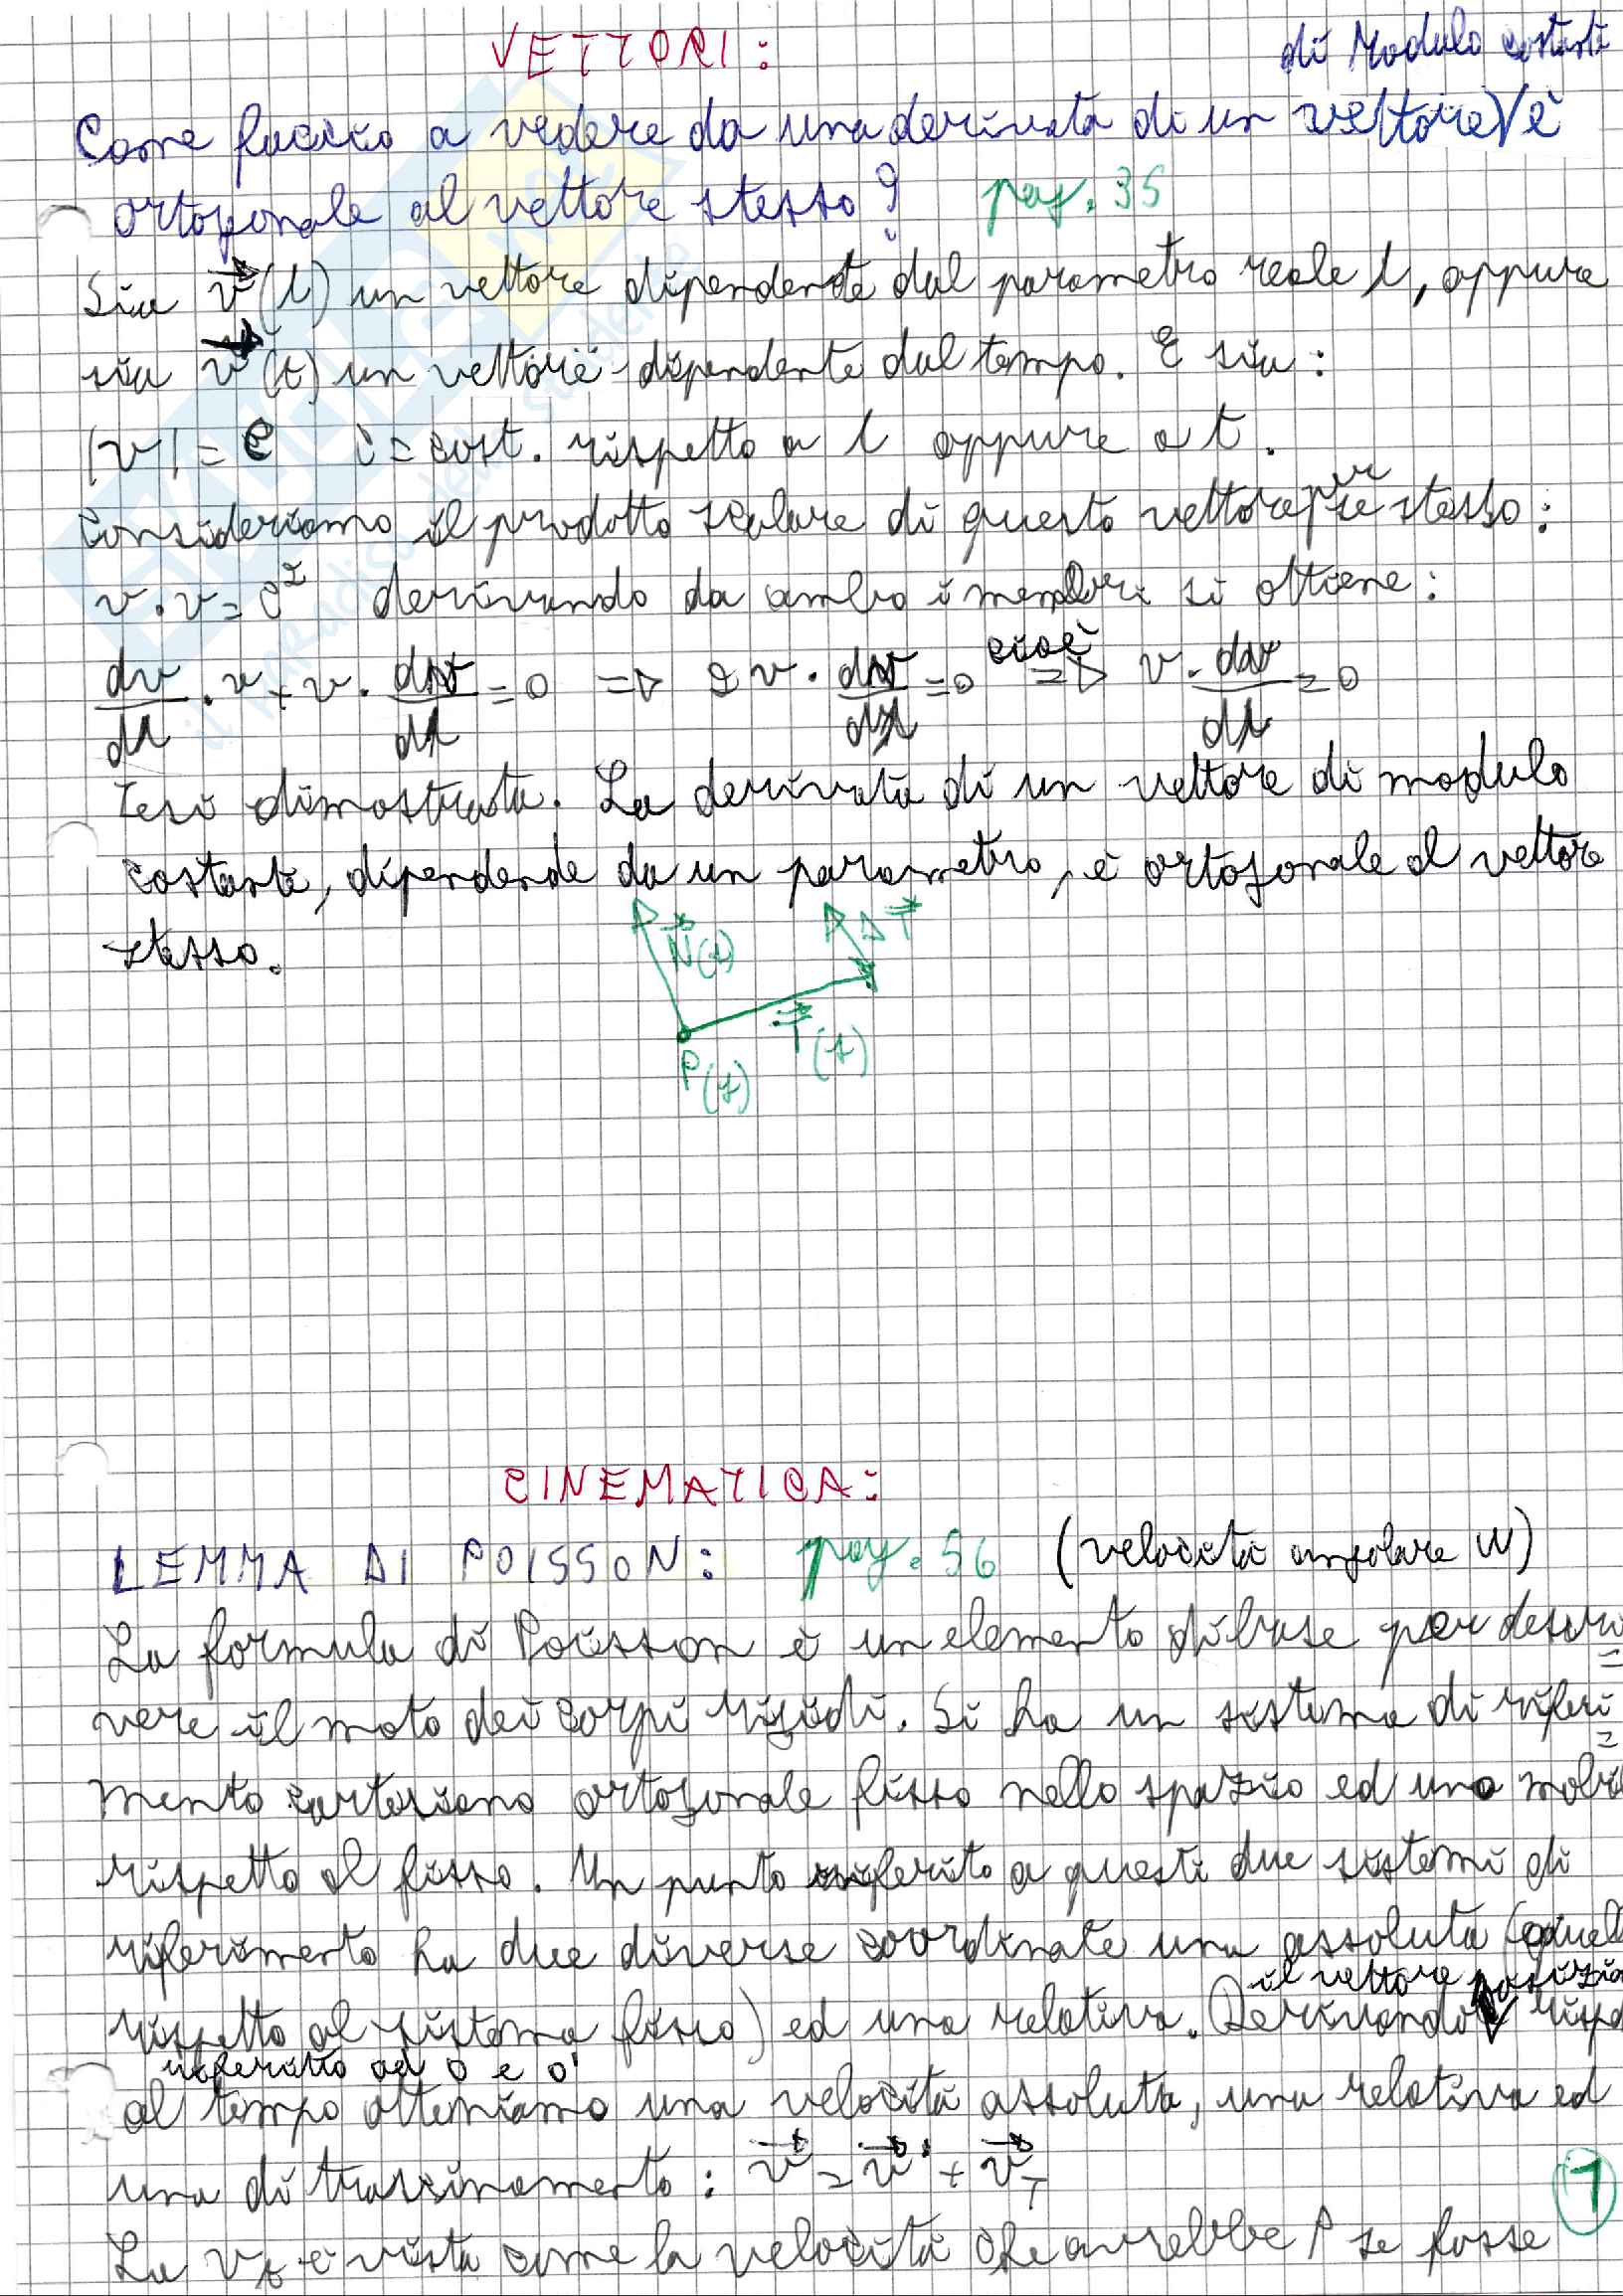 VETTORI:
di Modulo costante
Come faccio a vedere da una derivata di un vettore V è
ortogonale al vettore stesso? pag. 35
Sia v(l) un vettore dipendente dal parametro reale l, oppure
sia v(t) un vettore dipendente dal tempo. E sia:
|v| = c c = cost. rispetto a l oppure a t.
consideriamo il prodotto scalare di questo vettore per se stesso:
v·v = c² derivando da ambo i membri si ottiene:
dv/dl · v + v · dv/dl = 0 => 2 v · dv/dl = 0 cioè => v · dv/dl = 0
Tesi dimostrata. La derivata di un vettore di modulo
costante, dipendende da un parametro, è ortogonale al vettore
stesso.
N(s) ΔT
T(s)
P(s)
CINEMATICA:
LEMMA DI POISSON: pag. 56 (velocità angolare W)
La formula di Poisson è un elemento di base per descri
vere il moto dei corpi rigidi. Si ha un sistema di riferi
mento cartesiano ortogonale fisso nello spazio ed uno mobi
rispetto al fisso. Un punto riferito a questi due sistemi di
riferimento ha due diverse coordinate una assoluta (quell
il vettore posizio
rispetto al sistema fisso) ed una relativa. Derivando rispe
riferito ad O e O'
al tempo otteniamo una velocità assoluta, una relativa ed
una di trascinamento: v = v' + v_T
La v_t è vista come la velocità che avrebbe P se fosse
1